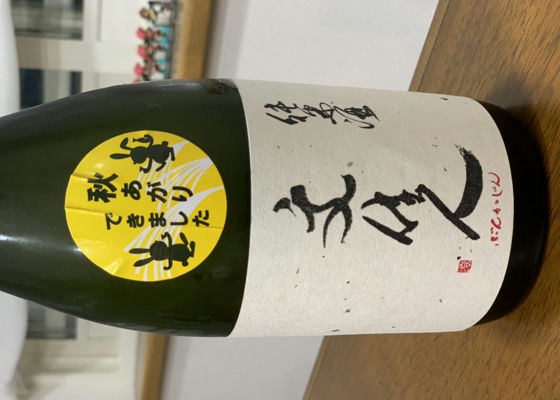 秋あがり
できました
純米酒
文佳人
ぶんかじん